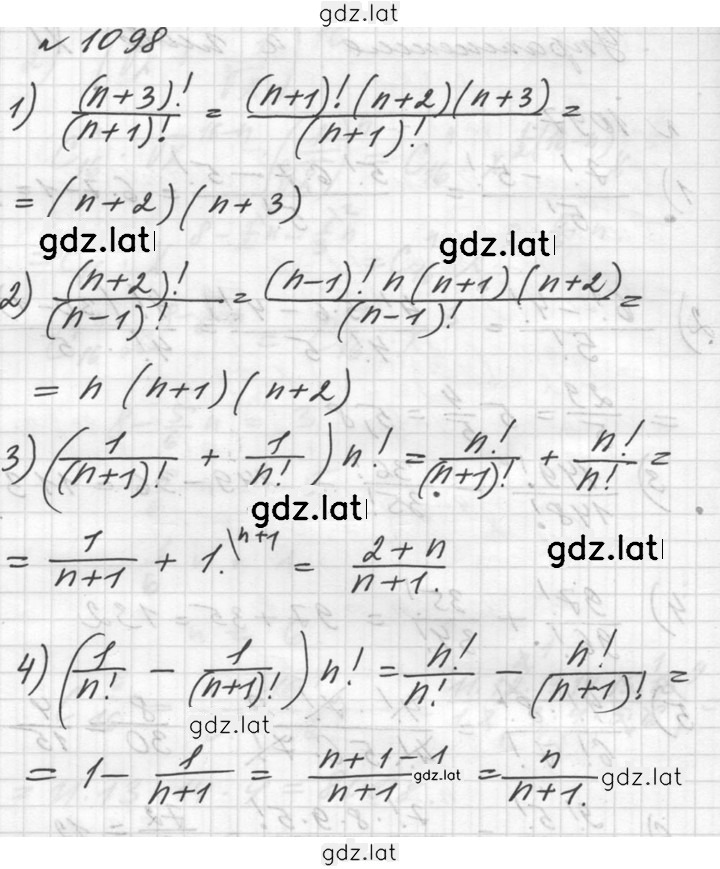 gdz.lat
№ 1098
1) (n+3)!/(n+1)! = (n+1)!(n+2)(n+3)/(n+1)! =
= (n+2)(n+3)
gdz.lat gdz.lat
2) (n+2)!/(n-1)! = (n-1)! n(n+1)(n+2)/(n-1)! =
= n (n+1)(n+2)
3) (1/(n+1)! + 1/n!) n! = n!/(n+1)! + n!/n! =
gdz.lat gdz.lat
= 1/(n+1) + 1.\n+1 = (2+n)/(n+1).
4) (1/n! - 1/(n+1)!) n! = n!/n! - n!/(n+1)! =
gdz.lat
= 1 - 1/(n+1) = (n+1-1)/(n+1) = n/(n+1).
gdz.lat gdz.lat
gdz.lat